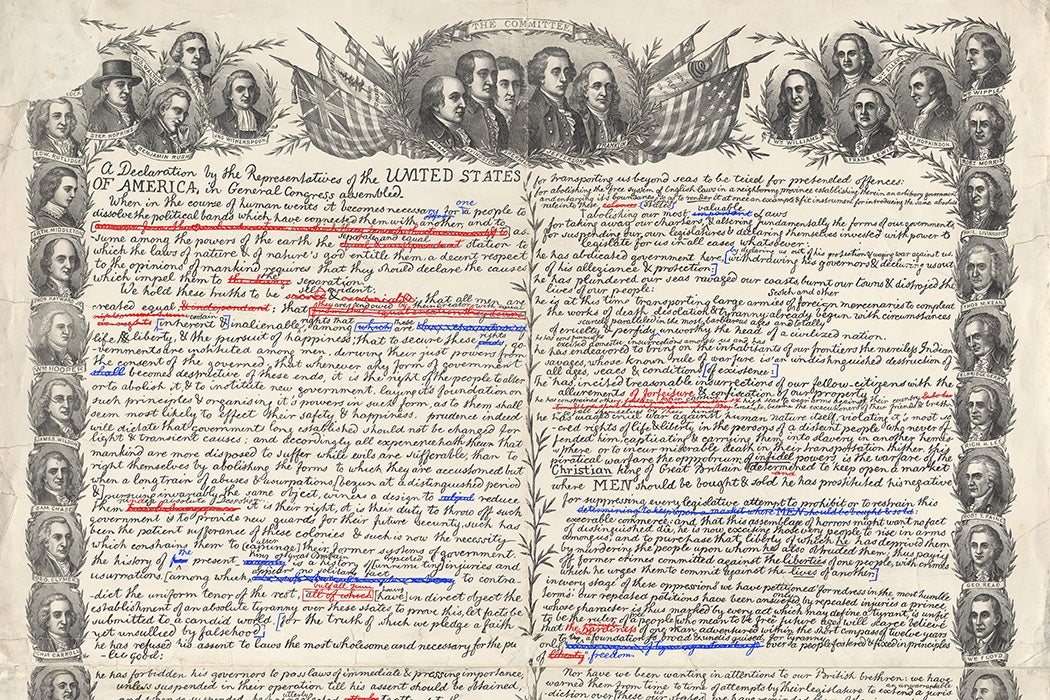 THE COMMITTEE
STEP. HOPKINS
BENJAMIN RUSH
JNO WITHERSPOON
WM WILLIAMS
FRANS LEWIS
F. HOPKINSON
WM WHIPPLE
EDW. RUTLEDGE
ROBT MORRIS
ARTH MIDDLETON
PHIL. LIVINGSTON
THOS HAYWARD
THOS M'KEAN
WM HOOPER
JAMES WILSON
RICH. H. LEE
SAML CHASE
ROBT T. PAINE
GEO. CLYMER
GEO. READ
CHAS CARROLL
WM FLOYD
A Declaration by the Representatives of the UNITED STATES
OF AMERICA, in General Congress assembled.
When in the course of human events it becomes necessary for a one people to
dissolve the political bands which have connected them with another, and to as-
sume among the powers of the earth the separate and equal station to
which the laws of nature & of nature's god entitle them, a decent respect
to the opinions of mankind requires that they should declare the causes
which impel them to the separation.
We hold these truths to be self evident; that all men are
created equal & independent; that they are endowed by their creator with
certain rights [inherent & inalienable, among which these are
life, liberty, & the pursuit of happiness; that to secure these rights, go-
vernments are instituted among men, deriving their just powers from
the consent of the governed; that whenever any form of government
shall becomes destructive of these ends, it is the right of the people to alter
or to abolish it, & to institute new government, laying it's foundation on
such principles & organising it's powers in such form, as to them shall
seem most likely to effect their safety & happiness. prudence indeed
will dictate that governments long established should not be changed for
light & transient causes: and accordingly all experience hath shewn that
mankind are more disposed to suffer while evils are sufferable, than to
right themselves by abolishing the forms to which they are accustomed. but
when a long train of abuses & usurpations [begun at a distinguished period
& pursuing invariably the same object, evinces a design to reduce
them under absolute Despotism it is their right, it is their duty to throw off such
government & to provide new guards for their future security. such has
been the patient sufferance of these colonies & such is now the necessity
which constrains them to [expunge] alter their former systems of government.
the history of the present king of Great Britain is a history of [unremitting] repeated injuries and
usurpations, [among which, appears no solitary fact to contra-
dict the uniform tenor of the rest, all of which have] in direct object the
establishment of an absolute tyranny over these states. to prove this, let facts be
submitted to a candid world. [for the truth of which we pledge a faith
yet unsullied by falsehood]
he has refused his assent to laws the most wholesome and necessary for the pu-
-blic good:
he has forbidden his governors to pass laws of immediate & pressing importance,
unless suspended in their operation till his assent should be obtained;
for transporting us beyond seas to be tried for pretended offences:
for abolishing the free system of English laws in a neighboring province establishing therein an arbitrary government
and enlarging it's boundaries so as to render it at once an example & fit instrument for introducing the same absolute
rule into these colonies states
abolishing our most important valuable laws
for taking away our charters, & altering fundamentally the forms of our governments
for suspending our own legislatures & declaring themselves invested with power to
legislate for us in all cases whatsoever:
he has abdicated government here, [withdrawing his governors, & declaring us out by declaring us out of his protection & waging war against us.
of his allegiance & protection:]
he has plundered our seas, ravaged our coasts, burnt our towns & destroyed the
lives of our people:
he is at this time transporting large armies of Scotch and other foreign mercenaries to compleat
the works of death, desolation & tyranny already begun with circumstances
scarcely paralleled in the most barbarous ages and totally
of cruelty & perfidy unworthy the head of a civilized nation.
he has excited domestic insurrections amongst us and has
he has endeavored to bring on the inhabitants of our frontiers the merciless Indian
savages, whose known rule of warfare is an undistinguished destruction of
all ages, sexes & conditions [of existence:]
he has incited treasonable insurrections of our fellow-citizens with the
allurements of forfeiture & confiscation of our property
he has waged cruel war against human nature itself, violating it's most sa-
-cred rights of life & liberty in the persons of a distant people who never of-
fended him, captivating & carrying them into slavery in another hemis-
-phere, or to incur miserable death in their transportation thither. this
piratical warfare, the opprobrium of infidel powers, is the warfare of the
Christian king of Great Britain [determined to keep open a market
where MEN should be bought & sold, he has prostituted his negative
for suppressing every legislative attempt to prohibit or to restrain this
determining to keep open a market where MEN should be bought & sold
execrable commerce: and that this assemblage of horrors might want no fact
of distinguished die, he is now exciting those very people to rise in arms
among us, and to purchase that liberty of which he has deprived them,
by murdering the people upon whom he also obtruded them; thus paying
off former crimes committed against the liberties of one people, with crimes
which he urges them to commit against the lives of another.]
in every stage of these oppressions we have petitioned for redress in the most humble
terms; our repeated petitions have been answered only by repeated injuries. a prince
whose character is thus marked by every act which may define a tyrant, is unfit
to be the ruler of a people who mean to be free. future ages will scarce believe
that the hardiness of one man, adventured within the short compass of twelve years
only to lay a foundation so broad & undisguised for tyranny over a people fostered & fixed in principles
of liberty freedom.
Nor have we been wanting in attentions to our British brethren. we have
warned them from time to time of attempts by their legislature to extend a juris-